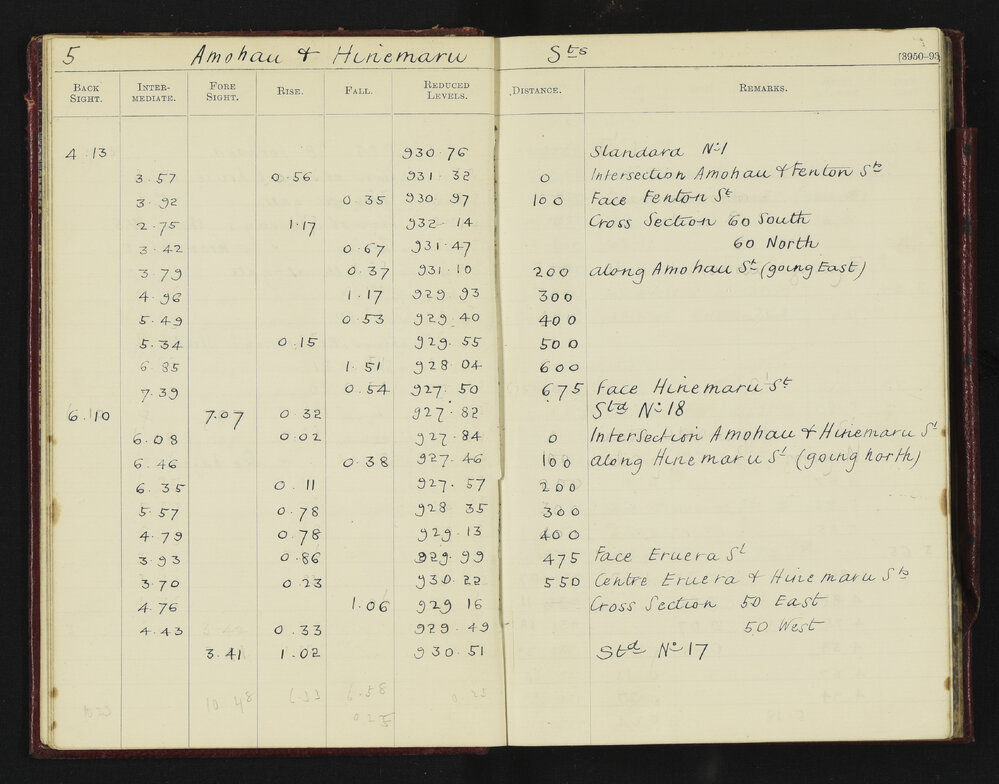 5 Amohau & Hinemaru Sts [3950–93
BACK SIGHT. INTER-MEDIATE. FORE SIGHT. RISE. FALL. REDUCED LEVELS. DISTANCE. REMARKS.
4.13 930.76 Standard No 1
3.57 0.56 931.32 0 Intersection Amohau & Fenton Sts
3.92 0.35 930.97 100 Face Fenton St
2.75 1.17 932.14 Cross Section 60 South
3.42 0.67 931.47 60 North
3.79 0.37 931.10 200 along Amohau St (going East)
4.96 1.17 929.93 300
5.49 0.53 929.40 400
5.34 0.15 929.55 500
6.85 1.51 928.04 600
7.39 0.54 927.50 675 Face Hinemaru St
6.10 7.07 0.32 927.82 Std No 18
6.08 0.02 927.84 0 Intersection Amohau & Hinemaru St
6.46 0.38 927.46 100 along Hinemaru St (going north)
6.35 0.11 927.57 200
5.57 0.78 928 35 300
4.79 0.78 929.13 400
3.93 0.86 929.99 475 Face Eruera St
3.70 0.23 930.22 550 Centre Eruera & Hinemaru Sts
4.76 1.06 929 16 Cross Section 50 East
4.43 0.33 929.49 50 West
3.41 1.02 930.51 Std No 17
10.48 6.58